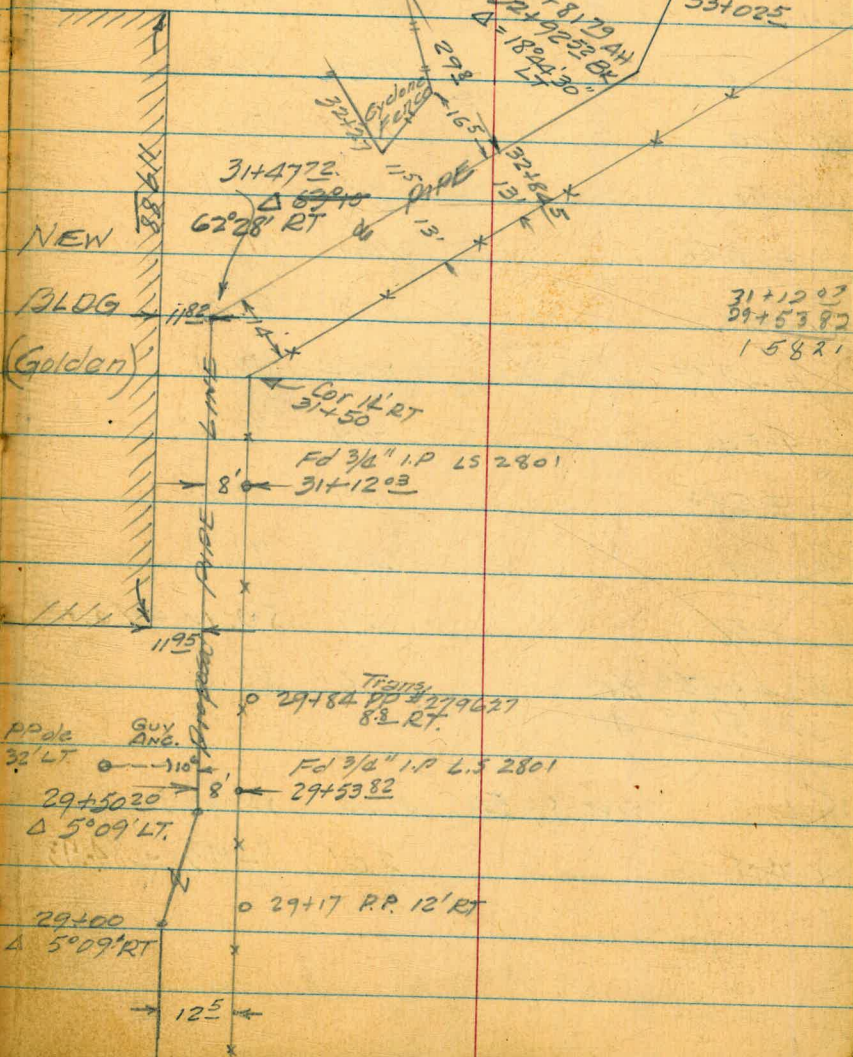 33+025
8179 AH
32+9252 BK
Δ = 18°44'30"
LT
298
Cyclone
Fence
165
32+845
31+4772
Δ 63°10
62°28' RT
=15
PIPE
13'
13'
NEW
BLDG
(Golden)
1182
14'
31+1203
29+5382
15821
Cor 14' RT
31+50
LINE
Fd 3/4" I.P LS 2801
8'
31+1203
PIPE
1195
Proposed
Trans
29+84 PP #279627
88 RT.
PPole
32' LT
GUY
ANC.
10'
Fd 3/4" I.P L.S 2801
8'
29+5382
29+5020
Δ 5°09' LT.
29+17 P.P. 12' RT
29+00
Δ 5°09' RT
125